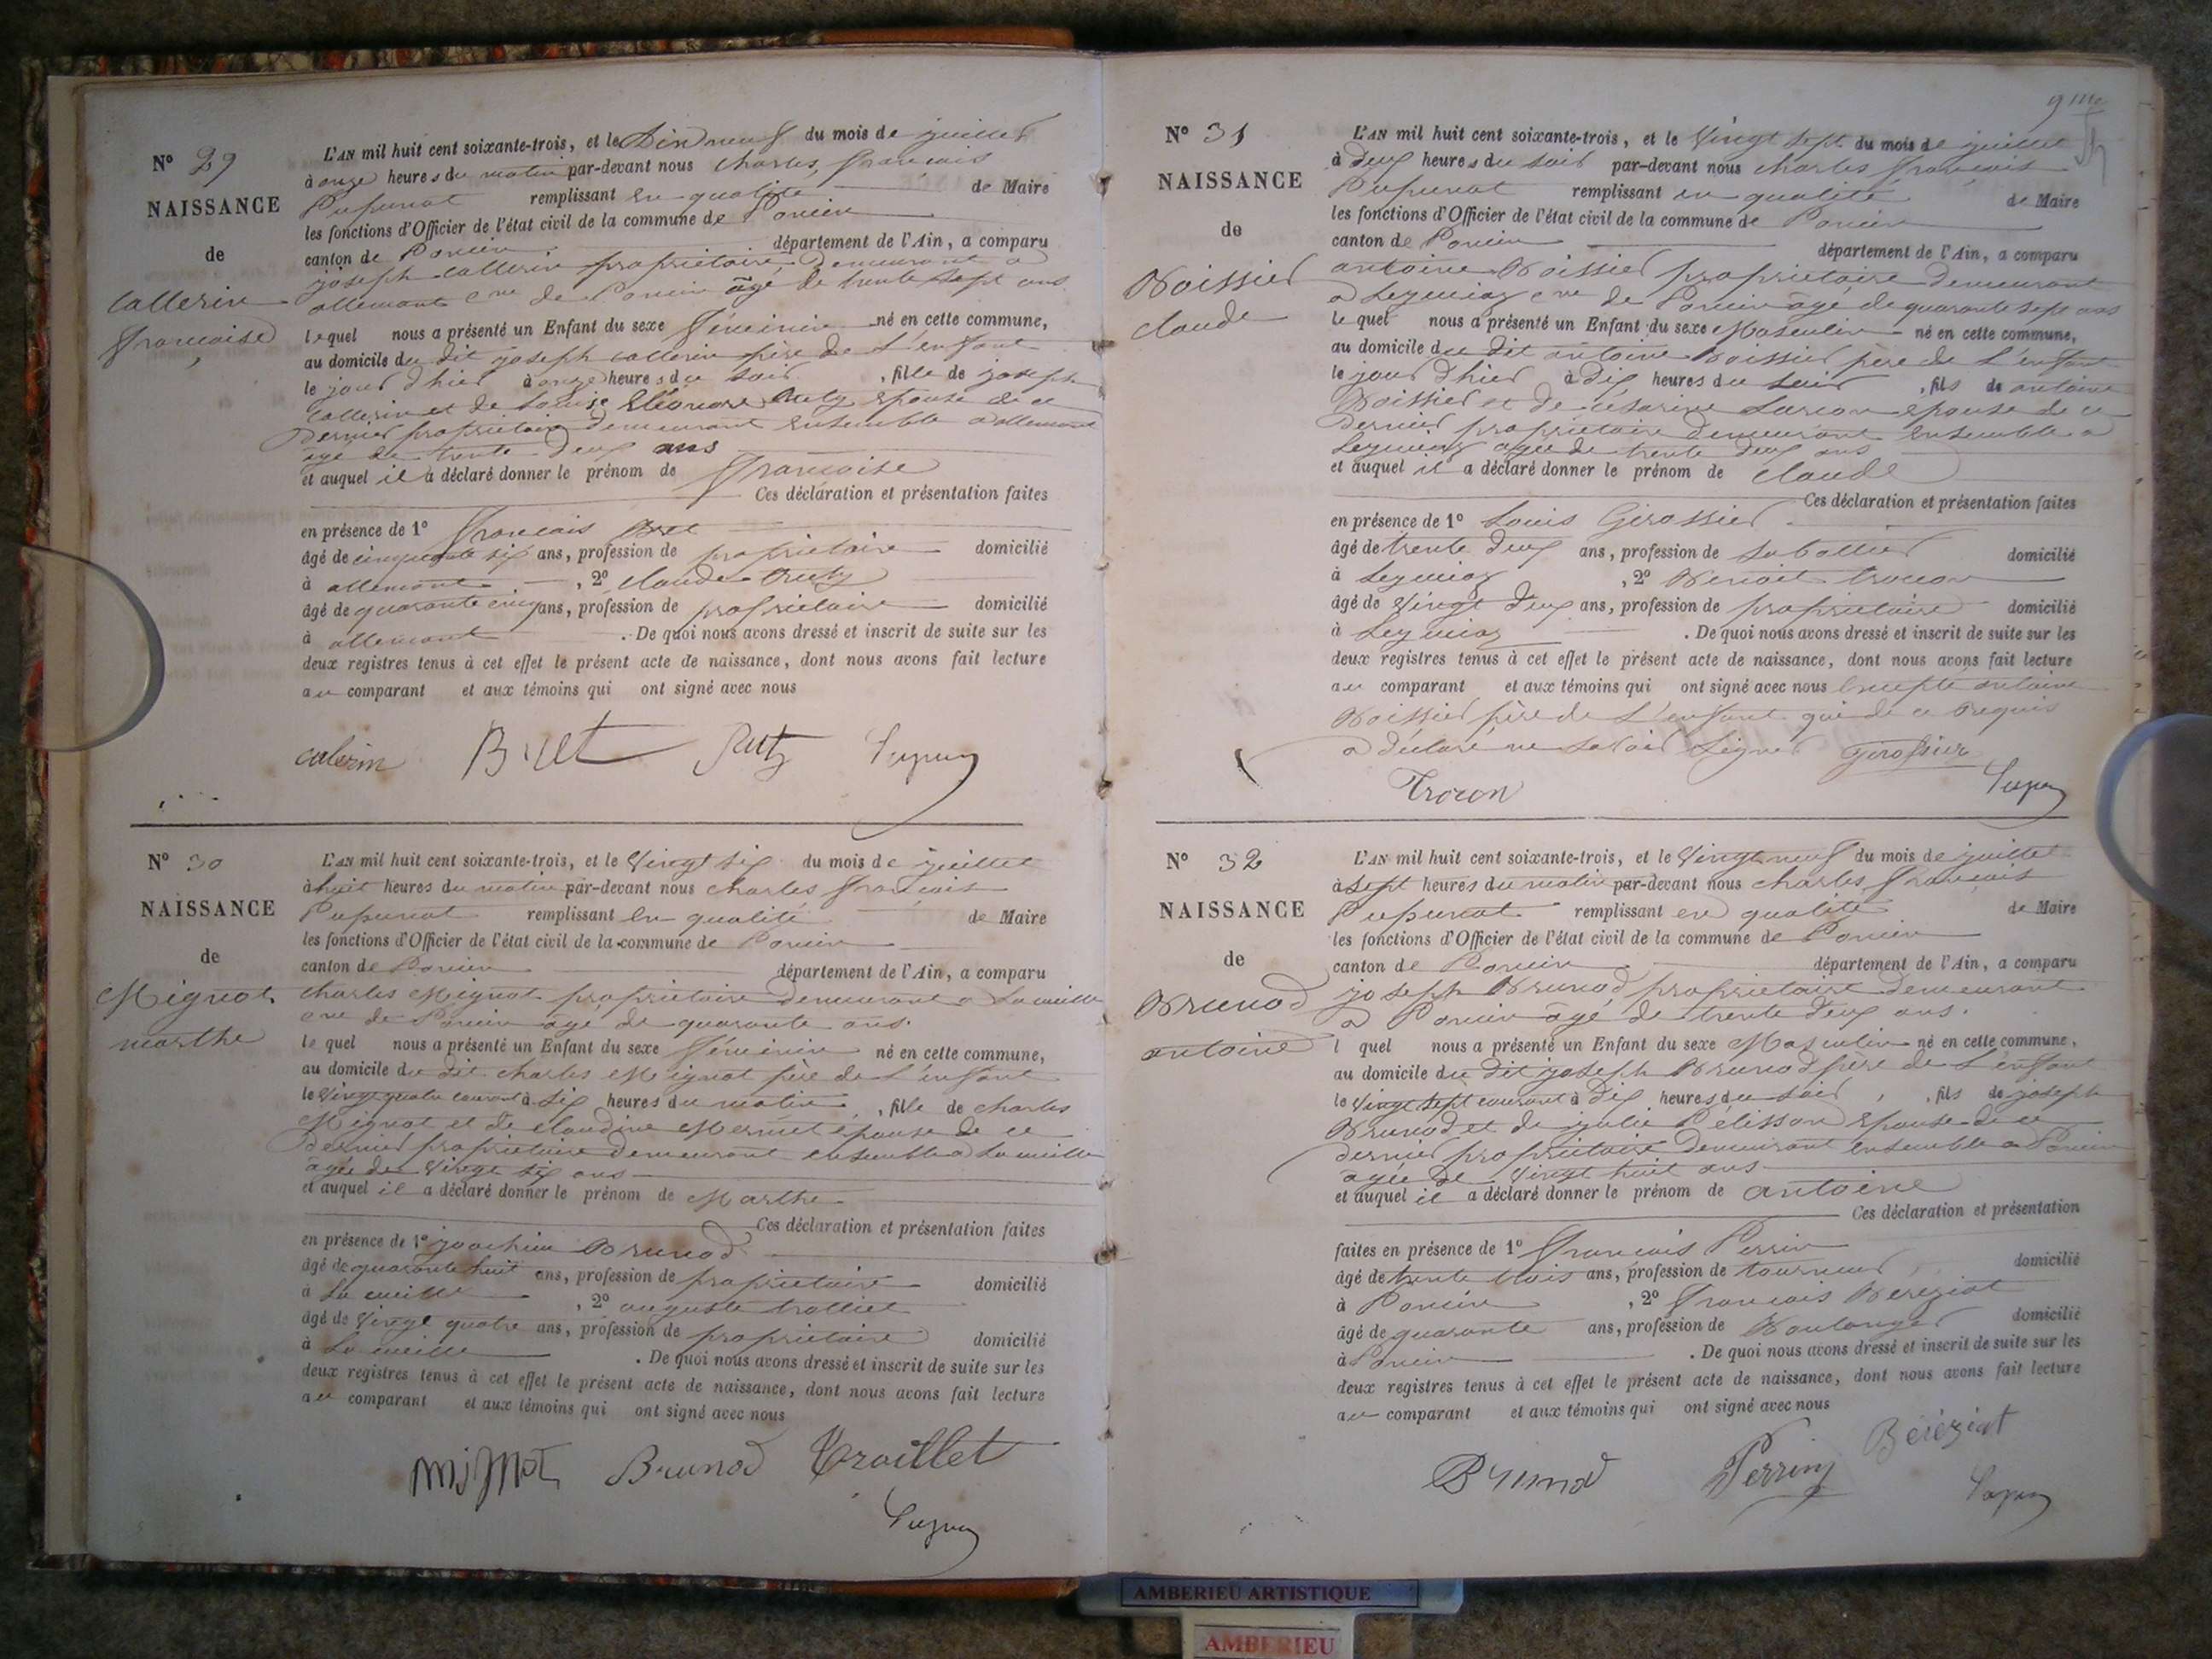 N° 29
NAISSANCE
de
Callerin
françoise
L'AN mil huit cent soixante-trois, et le Dix neuf du mois de juillet
à onze heures du matin par-devant nous charles, françois
Pupunat remplissant en qualité de Maire
les fonctions d'Officier de l'état civil de la commune de Poncin
canton de Poncin département de l'Ain, a comparu
joseph Callerin propriétaire, demeurant a
allement cne de Poncin âgé de trente sept ans
lequel nous a présenté un Enfant du sexe féminin né en cette commune,
au domicile du dit joseph callerin père de l'enfant
le jour d'hier à onze heures du soir, fille de joseph
Callerin et de Louise Eléonore Ruty épouse de ce
dernier propriétaire demeurant ensemble a allement
agé de trente deux ans
et auquel il a déclaré donner le prénom de françoise
Ces déclaration et présentation faites
en présence de 1° françois Bret
âgé de cinquante six ans, profession de propriétaire domicilié
à allement, 2° claude Ruty
âgé de quarante cinq ans, profession de propriétaire domicilié
à allement. De quoi nous avons dressé et inscrit de suite sur les
deux registres tenus à cet effet le présent acte de naissance, dont nous avons fait lecture
au comparant et aux témoins qui ont signé avec nous
calerin Bret Ruty
N° 30
NAISSANCE
de
Mignot
marthe
L'AN mil huit cent soixante-trois, et le Vingt six du mois de juillet
à huit heures du matin par-devant nous charles françois
Pupunat remplissant en qualité de Maire
les fonctions d'Officier de l'état civil de la commune de Poncin
canton de Poncin département de l'Ain, a comparu
charles Mignot propriétaire demeurant a La cueille
cne de Poncin âgé de quarante ans.
lequel nous a présenté un Enfant du sexe féminin né en cette commune,
au domicile du dit charles Mignot père de l'enfant
le Vingt quatre courant à six heures du matin, fille de charles
Mignot et de claudine Mermet épouse de ce
dernier propriétaire demeurant ensemble a La cueille
agée de Vingt six ans
et auquel il a déclaré donner le prénom de Marthe
Ces déclaration et présentation faites
en présence de 1° joachim Brunod
âgé de quarante huit ans, profession de propriétaire domicilié
à La cueille, 2° auguste trolliet
âgé de Vingt quatre ans, profession de propriétaire domicilié
à La cueille. De quoi nous avons dressé et inscrit de suite sur les
deux registres tenus à cet effet le présent acte de naissance, dont nous avons fait lecture
au comparant et aux témoins qui ont signé avec nous
Mignot Brunod Troillet
N° 31
NAISSANCE
de
Boissier
claude
L'AN mil huit cent soixante-trois, et le Vingt sept du mois de juillet
à deux heures du soir par-devant nous charles françois
Pupunat remplissant en qualité de Maire
les fonctions d'Officier de l'état civil de la commune de Poncin
canton de Poncin département de l'Ain, a comparu
antoine Boissier propriétaire demeurant
a Leymiaz cne de Poncin âgé de quarante sept ans
lequel nous a présenté un Enfant du sexe Masculin né en cette commune,
au domicile du dit antoine Boissier père de l'enfant
le jour d'hier à dix heures du soir, fils de antoine
Boissier et de césarine épouse de ce
dernier propriétaire demeurant ensemble a
Leymiaz agée de trente deux ans
et auquel il a déclaré donner le prénom de claude
Ces déclaration et présentation faites
en présence de 1° Louis Girossier
âgé de trente deux ans, profession de sabottier domicilié
à Leymiaz, 2° Benoit trocon
âgé de Vingt deux ans, profession de propriétaire domicilié
à Leymiaz. De quoi nous avons dressé et inscrit de suite sur les
deux registres tenus à cet effet le présent acte de naissance, dont nous avons fait lecture
au comparant et aux témoins qui ont signé avec nous Excepté antoine
Boissier père de l'enfant qui de ce requis
a déclaré ne savoir signer Girossier
Trocon
N° 32
NAISSANCE
de
Brunod
antoine
L'AN mil huit cent soixante-trois, et le Vingt neuf du mois de juillet
à sept heures du matin par-devant nous charles françois
Pupunat remplissant en qualité de Maire
les fonctions d'Officier de l'état civil de la commune de Poncin
canton de Poncin département de l'Ain, a comparu
joseph Brunod propriétaire demeurant
a Poncin âgé de trente deux ans.
l quel nous a présenté un Enfant du sexe Masculin né en cette commune,
au domicile du dit joseph Brunod père de l'enfant
le Vingt sept courant à dix heures du soir, fils de joseph
Brunod et de julie Pélisson épouse de ce
dernier propriétaire demeurant ensemble a Poncin
agée de Vingt huit ans
et auquel il a déclaré donner le prénom de antoine
Ces déclaration et présentation
faites en présence de 1° françois Perrin
âgé de trente trois ans, profession de tourneur domicilié
à Poncin, 2° françois Bereziat
âgé de quarante ans, profession de Boulanger domicilié
à Poncin. De quoi nous avons dressé et inscrit de suite sur les
deux registres tenus à cet effet le présent acte de naissance, dont nous avons fait lecture
au comparant et aux témoins qui ont signé avec nous
Brunod Perrin Béréziat
AMBERIEU ARTISTIQUE
AMBERIEU